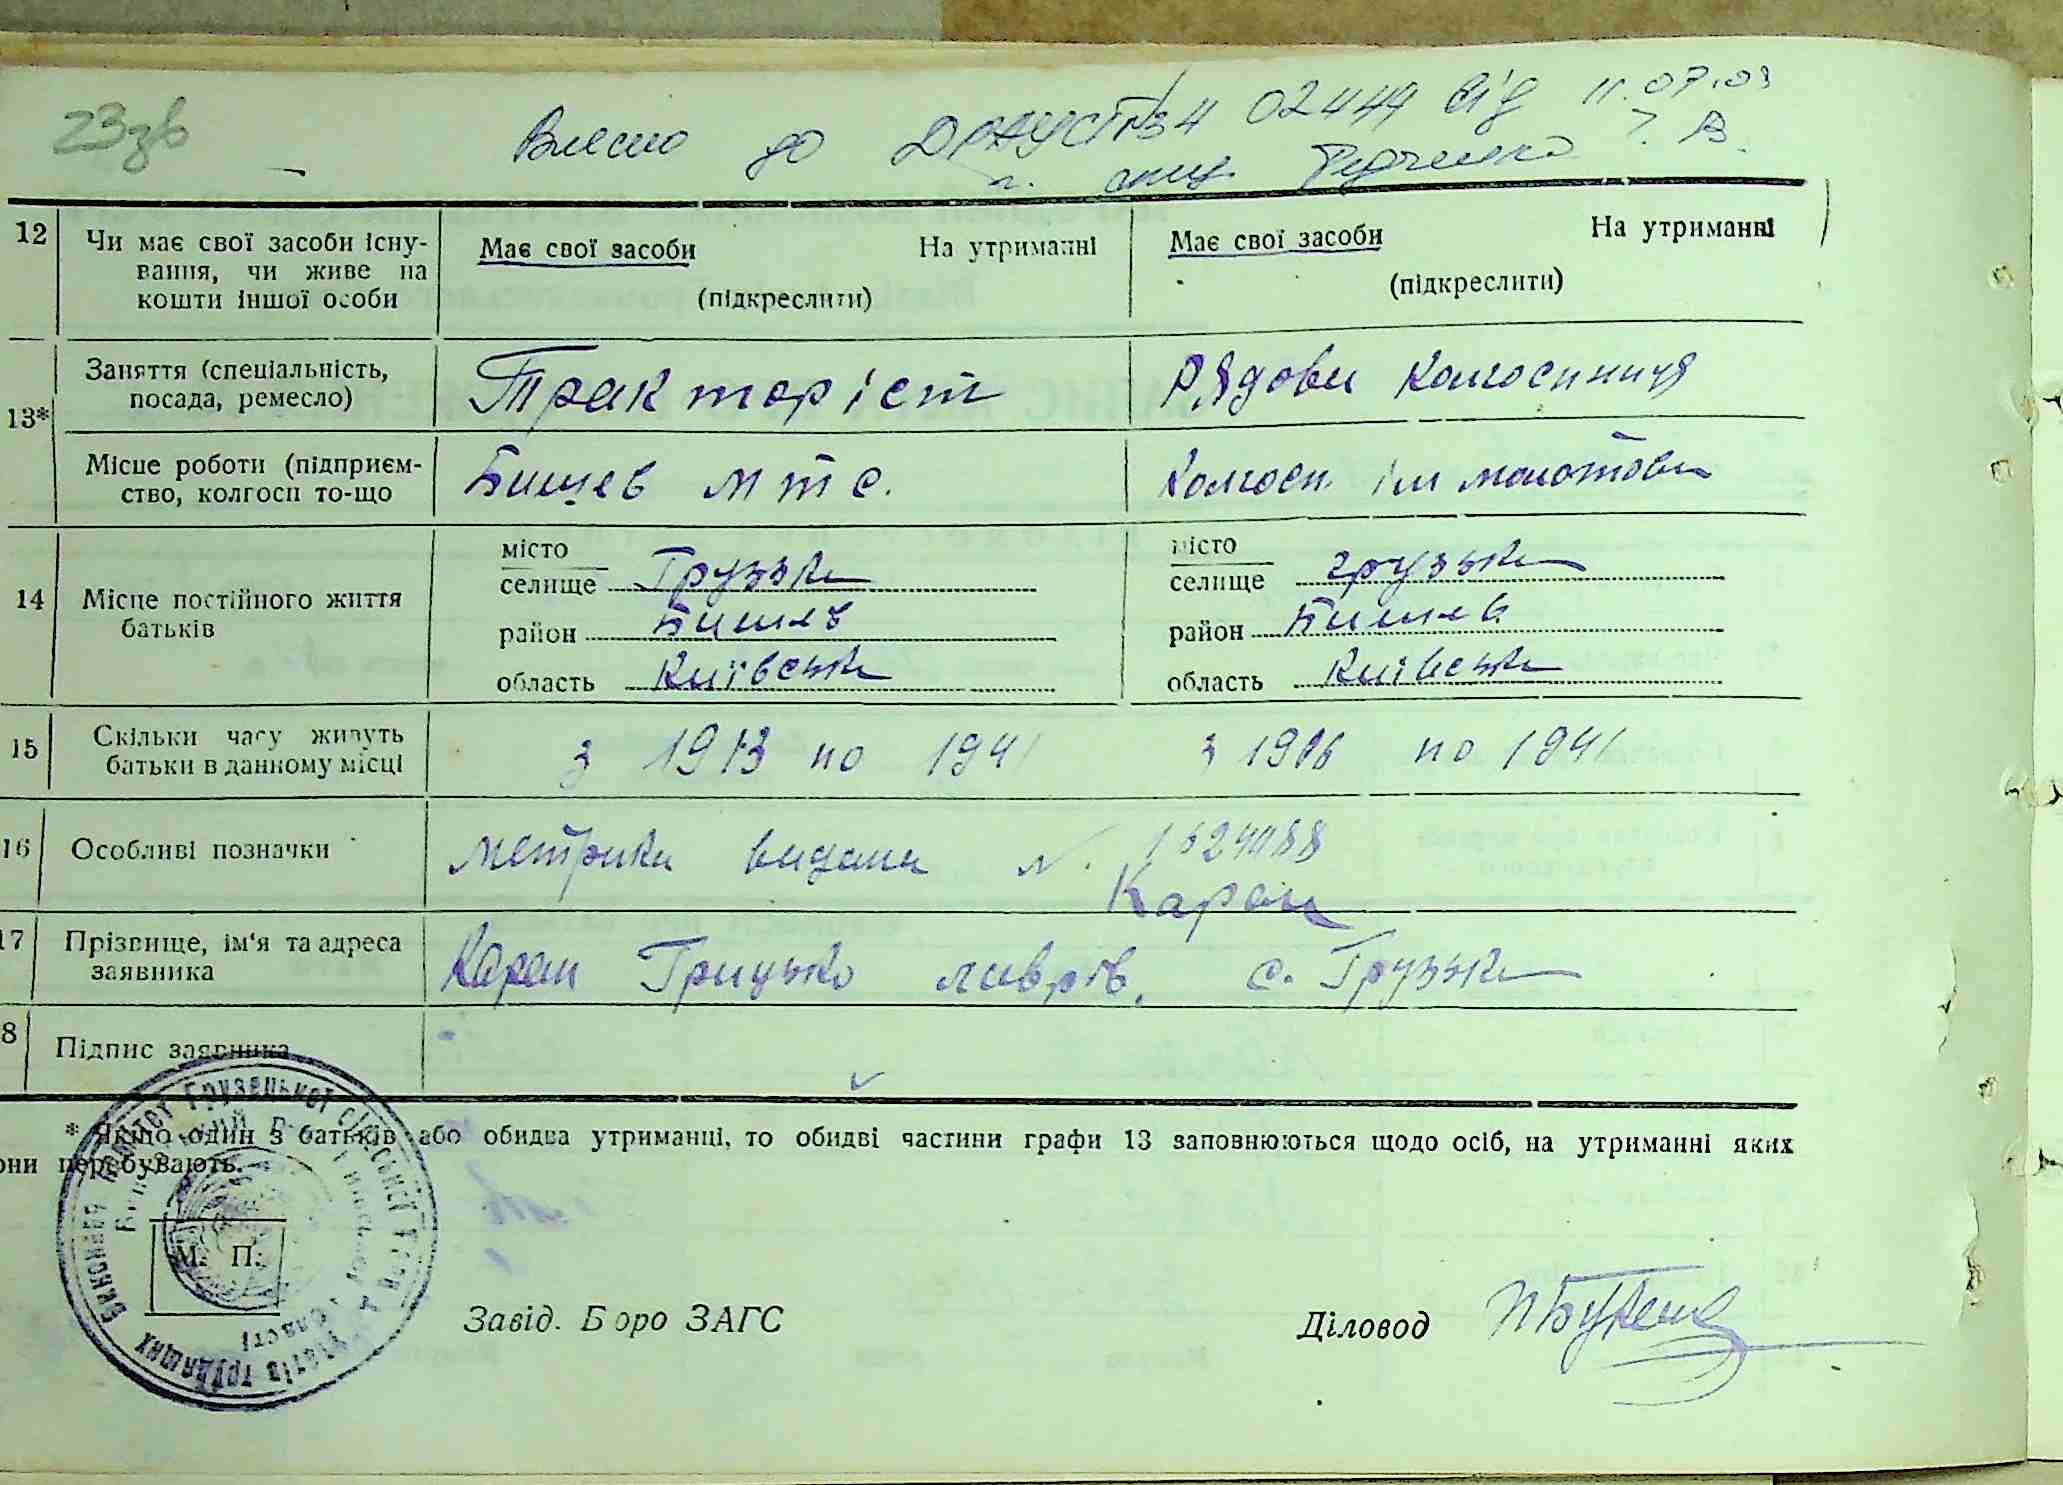 23зв
Внесено до ДРАЦСГ №34 02444 від 11.07.09
спец.
12 Чи має свої засоби існу- Має свої засоби На утриманні Має свої засоби На утриманні
вання, чи живе на
кошти іншої особи (підкреслити) (підкреслити)
13* Заняття (спеціальність, Тракторіст Рядова колгоспниця
посада, ремесло)
Місце роботи (підприєм- Бишев мтс. Колгосп. ім молотова
ство, колгосп то-що
14 Місце постійного життя місто місто
батьків селище Грузька селище грузька
район Бишев район Бишев
область Київська область Київська
15 Скільки часу живуть з 1913 по 1941 з 1916 по 1941
батьки в данному місці
16 Особливі позначки метрика видана №.
Каран
17 Прізвище, ім'я та адреса Каран Грицько лаврів. с. Грузька
заявника
8 Підпис заявника
* Якщо один з батьків або обидва утриманці, то обидві частини графи 13 заповнюються щодо осіб, на утриманні яких
они перебувають.
Виконавчий комітет Грузецької сільської ради депутатів трудящих
області
М. П.
Завід. Бюро ЗАГС Діловод